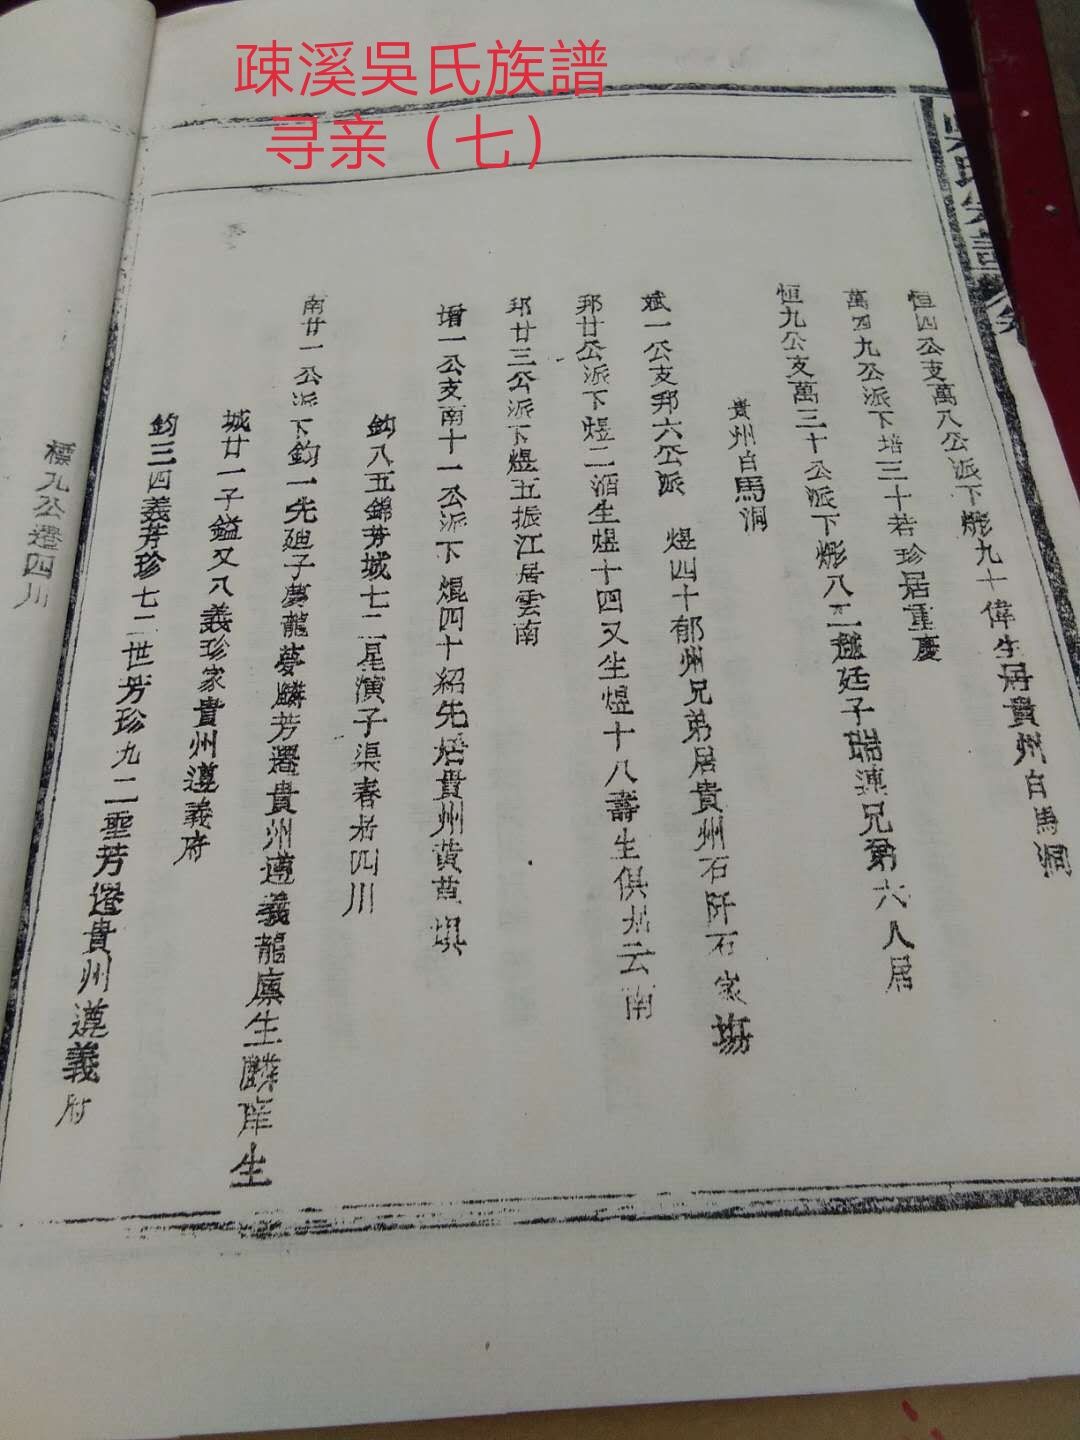 疎溪吳氏族譜
寻亲（七）
吳氏宗譜
恒四公支萬八公派下彬九十偉生居貴州白馬洞
萬四九公派下培三十若珍居重慶
恒九公支萬三十公派下彬八二越廷子瑞璉兄弟六人居
貴州白馬洞
斌一公支邦六公派 煜四十郁州兄弟居貴州石阡石家塲
邦廿公派下煜二酒生煜十四又生煜十八壽生俱居云南
邦廿三公派下煜五振江居雲南
增一公支南十一公派下焜四十紹先居貴州黃草埧
鈞八五錦芳城七二星演子渠春居四川
南廿一公派下鈞一先廸子夢龍夢麟芳遷貴州遵義龍廩生麟庠生
城廿一子鎰又八義珍家貴州遵義府
鈞三四義芳珍七二世芳珍九二聖芳遷貴州遵義府
標九公遷四川